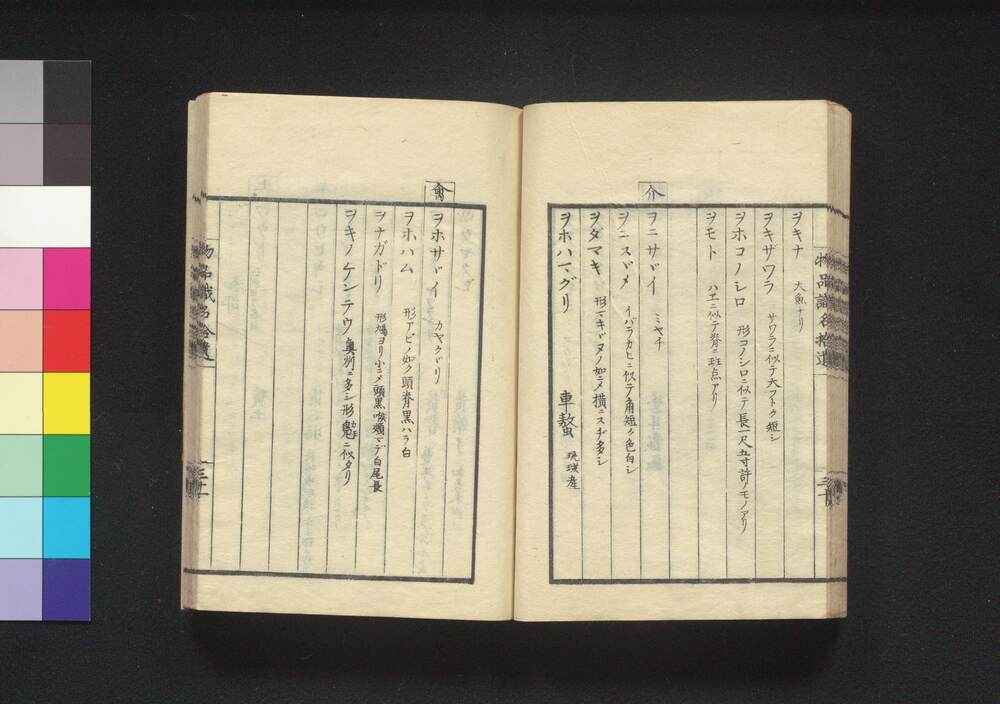 ヲキナ 大魚ナリ
ヲキザワラ サワラニ似テ大フトク短シ
ヲホコノシロ 形コノシロニ似テ長一尺五寸許ノモノアリ
ヲモト ハヱニ似テ脊ニ斑点アリ
介
ヲニサヾイ ミヤチ
ヲニスヾメ イバラカヒニ似テ角短ク色白シ
ヲダマキ 形マキヾヌノ如ニメ横ニスヂ多シ
ヲホハマグリ 車螯 琉球産
物品識名拾遺
三十
禽
ヲホサヾイ カヤクヾリ
ヲホハム 形アビノ如ク頭脊黒ハラ白
ヲナガドリ 形鳩ヨリ小ニメ頭黒喉ヨリ 白尾長
ヲキノケンテウ 奥州ニ多シ形 ニ似タリ
物品識名拾遺
三十一